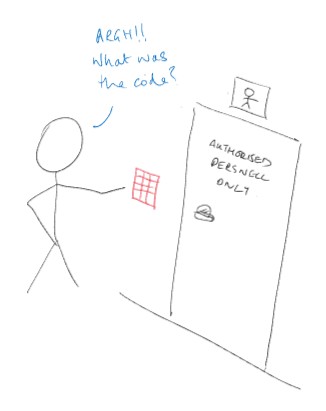 ARGH!!
What was
the code?
AUTHORISED
PERSNELL
ONLY